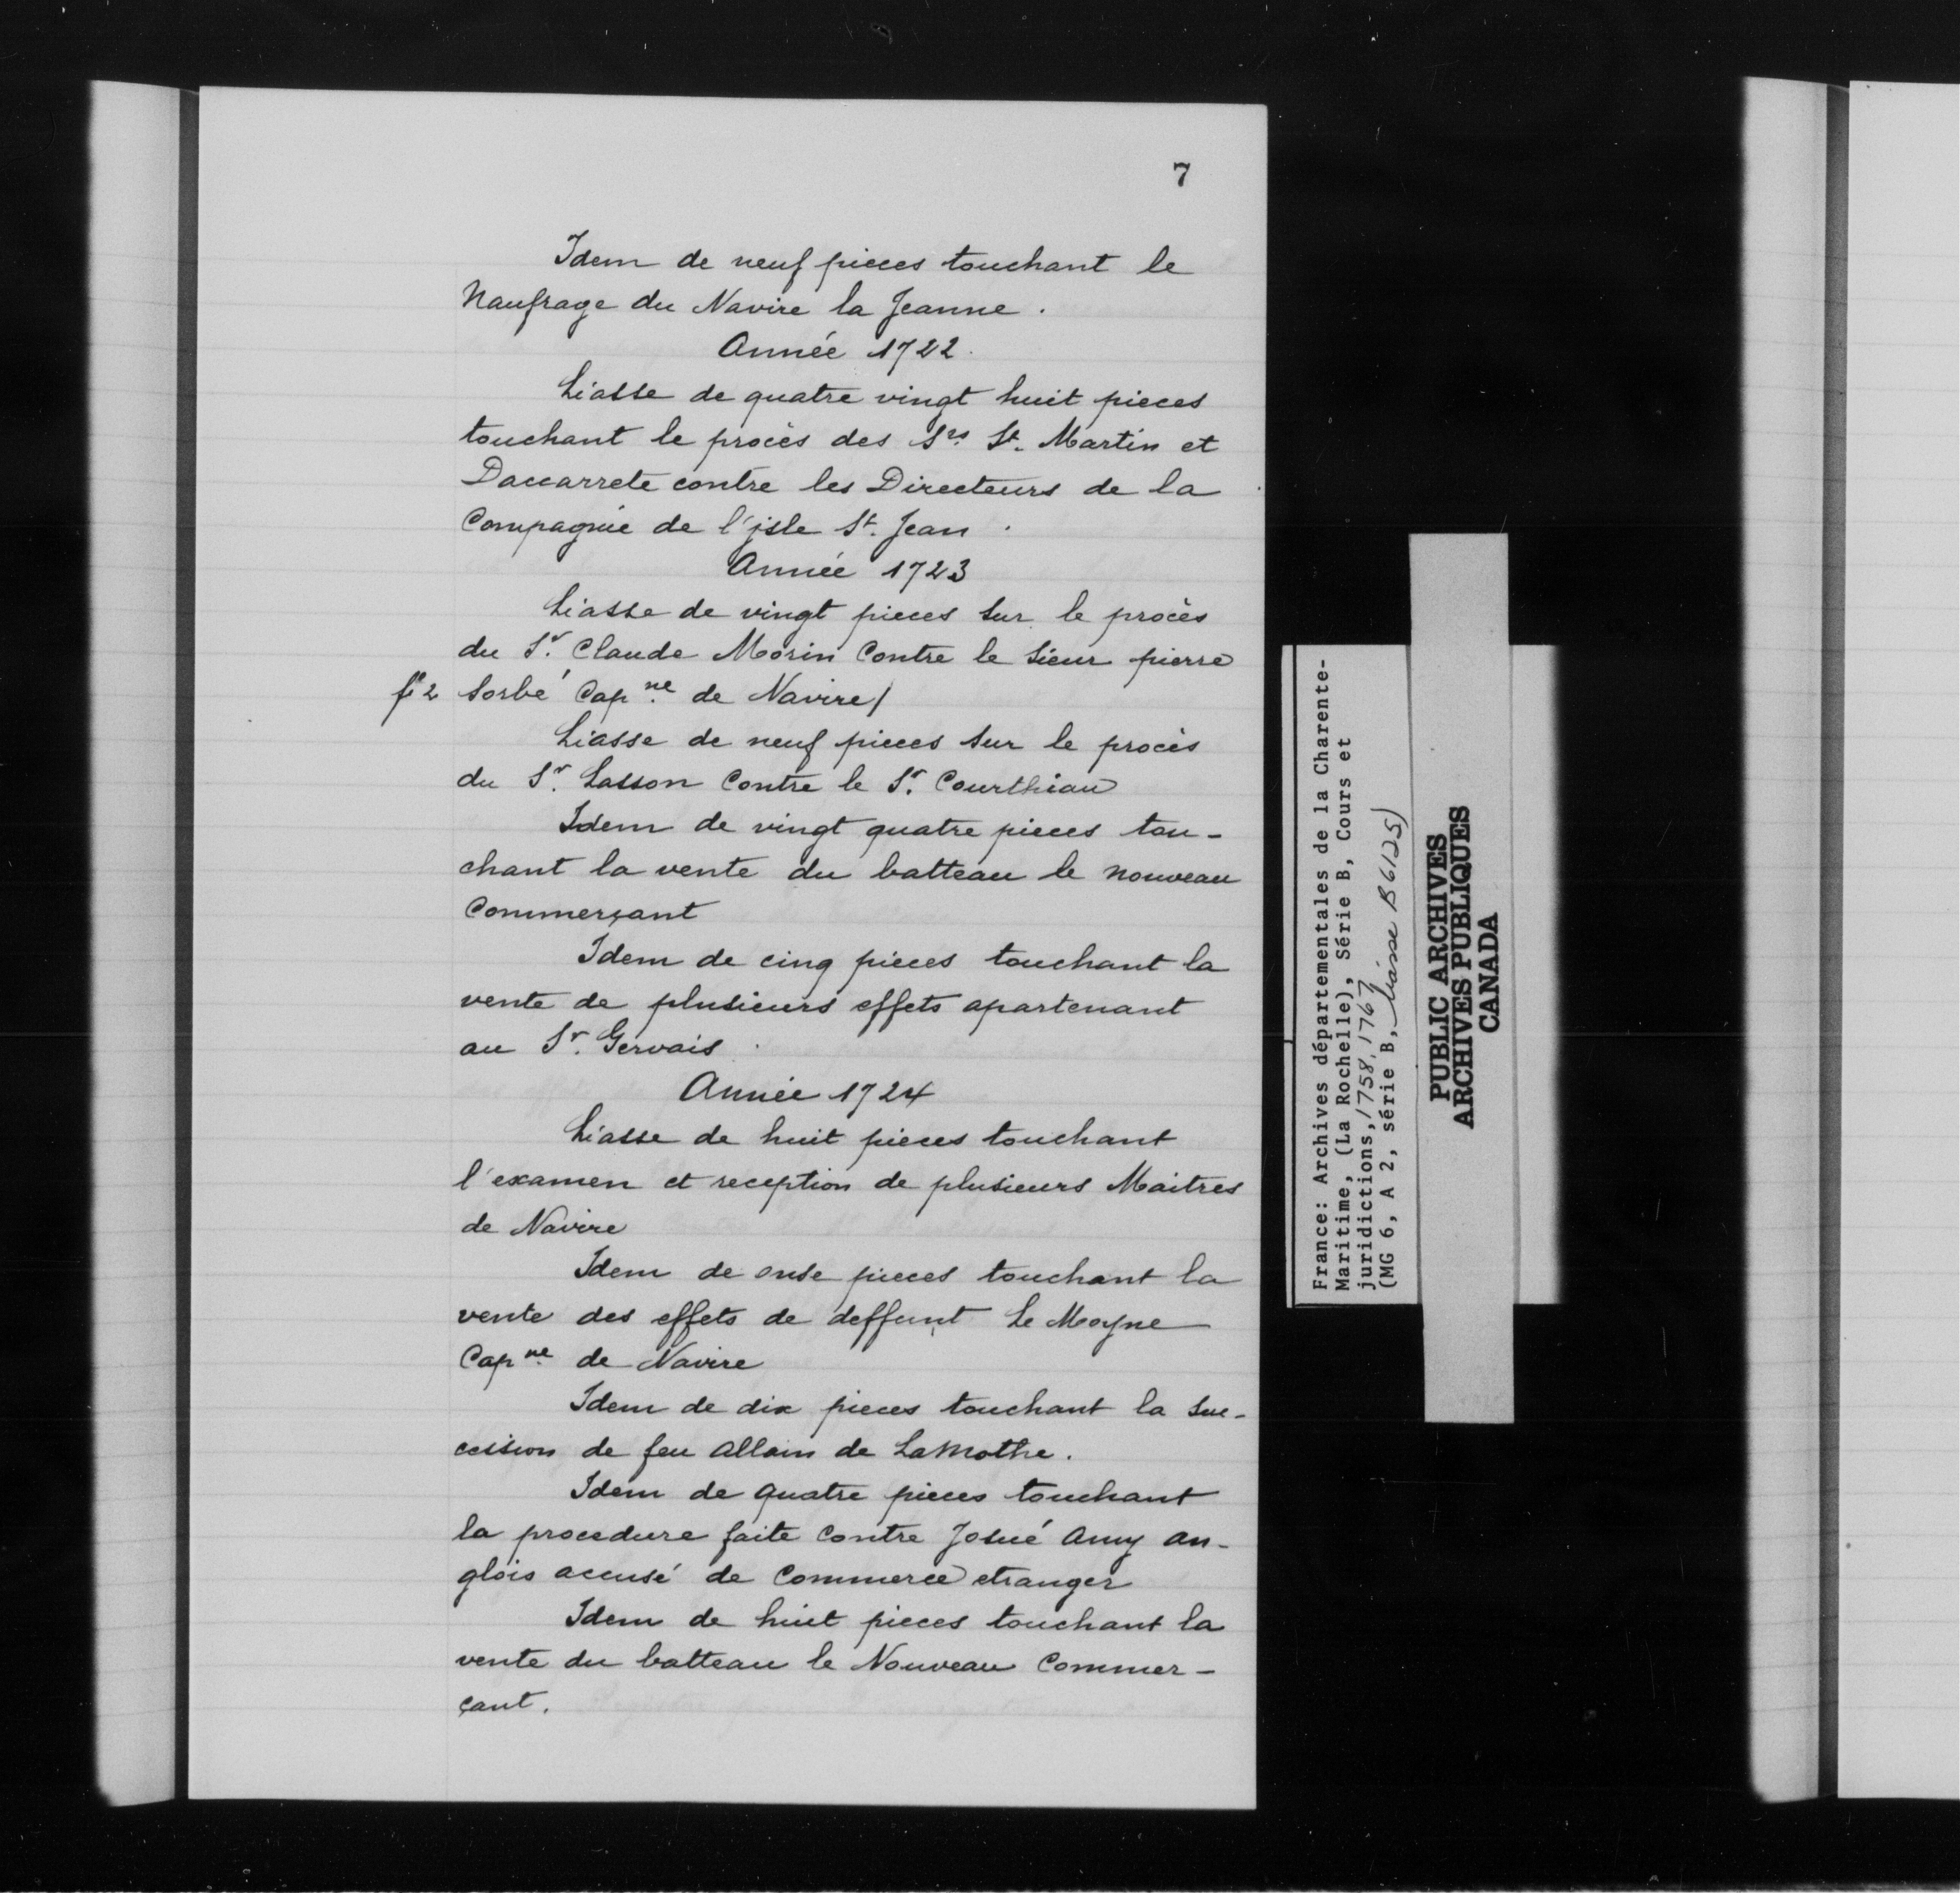 7
Idem de neuf pieces touchant le
Naufrage du Navire la Jeanne.
Année 1722.
Liasse de quatre vingt huit pieces
touchant le procès des Srs. St. Martin et
Daccarrete contre les Directeurs de la
Compagnie de l'jsle St. Jean.
Année 1723
Liasse de vingt pieces sur le procès
du Sr. Claude Morin Contre le sieur pierre
fo 2 Sorbé Capne. de Navire/
Liasse de neuf pieces sur le procès
du Sr. Lasson Contre le Sr. Courthiau
Idem de vingt quatre pieces tou-
chant la vente du batteau le nouveau
Commerçant
Idem de cinq pieces touchant la
vente de plusieurs effets apartenant
au Sr. Gervais.
Année 1724
Liasse de huit pieces touchant
l'examen et reception de plusieurs Maitres
de Navire
Idem de onse pieces touchant la
vente des effets de deffunt Le Moyne
Capne. de Navire
Idem de dix pieces touchant la suc-
cession de feu allain de LaMothe.
Idem de quatre pieces touchant
la procedure faite Contre Josué amy an-
glois accusé de Commerce etranger
Idem de huit pieces touchant la
vente du batteau le Nouveau Commer-
çant.
France: Archives départementales de la Charente-
Maritime, (La Rochelle), Série B, Cours et
juridictions, 1758, 1767
(MG 6, A 2, série B, liasse B6125)
PUBLIC ARCHIVES
ARCHIVES PUBLIQUES
CANADA